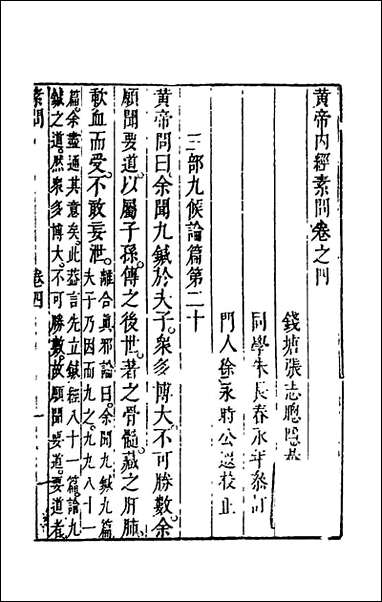 黄帝内經素問卷之四
錢塘張志聰隱菴
同學朱長春永年叅訂
門人徐永時公遐校正
三部九候論篇第二十
黄帝問曰。余聞九鍼於夫子。衆多博大。不可勝數。余
願聞要道。以屬子孫。傳之後世。著之骨髓。藏之肝肺。
歃血而受。不敢妄泄。離合眞邪論曰。余聞九鍼九篇。夫子乃因而九之。九九八十一
篇。余盡通其意矣。此葢言先立鍼經八十一篇。論九
鍼之道。然衆多博大。不可勝數。故願聞要道。要道者。
素問 卷四 一